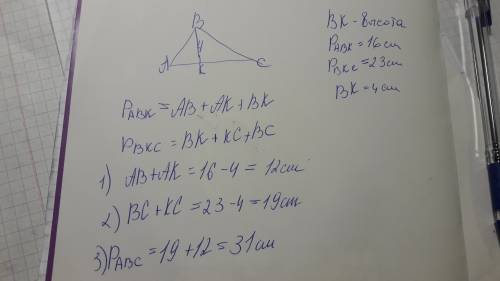 B
4
A
K
C
BK - высота
P ABK = 16 cm
P BKC = 23 cm
BK = 4 cm
P ABK = AB + AK + BK
P BKC = BK + KC + BC
1) AB + AK = 16 - 4 = 12 cm
2) BC + KC = 23 - 4 = 19 cm
3) P ABC = 19 + 12 = 31 cm